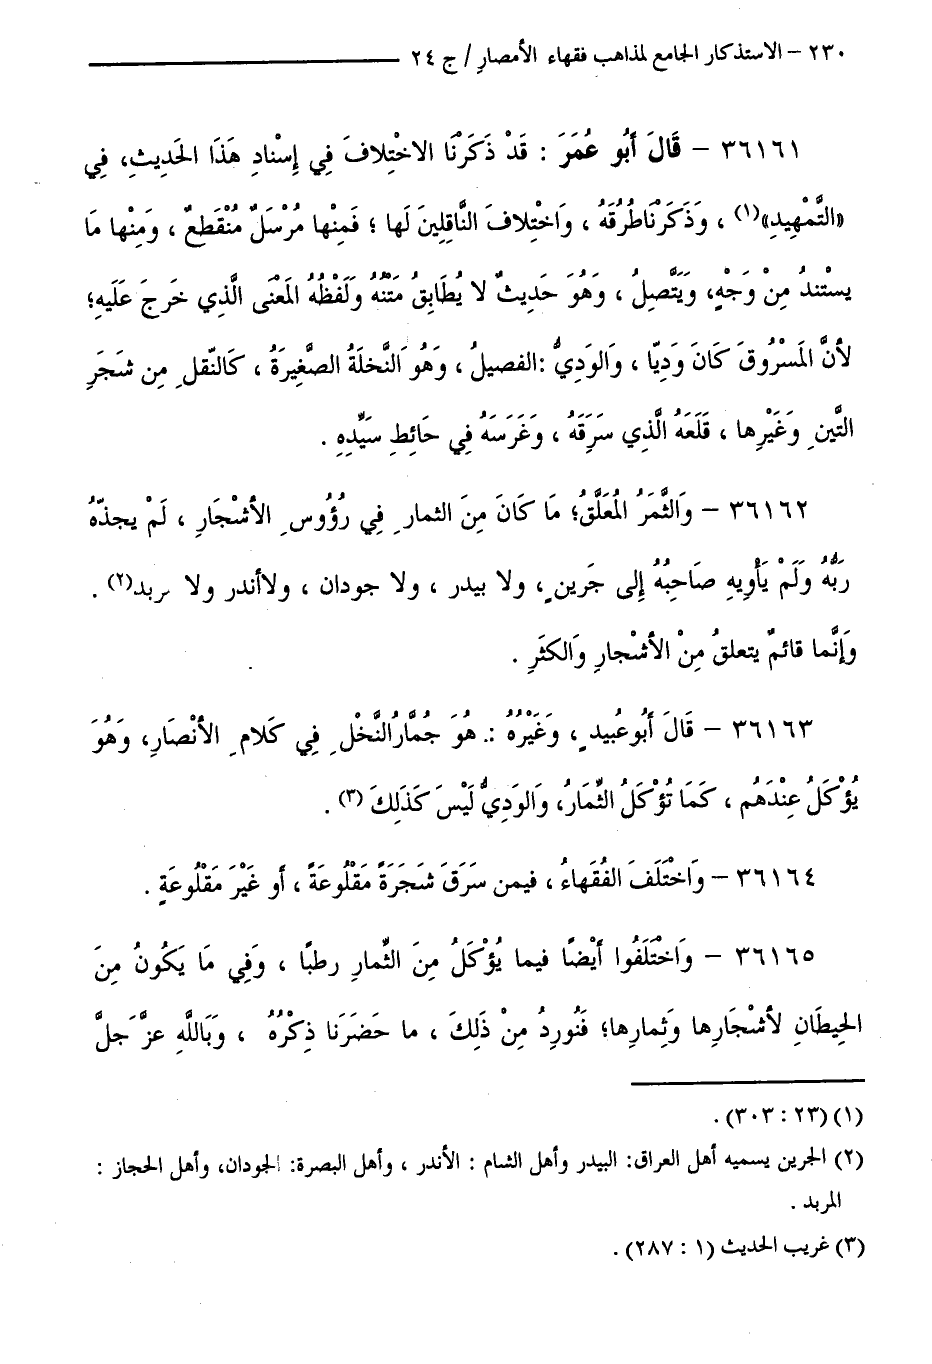 ٢٣٠ – الاستذكار الجامع لمذاهب فقهاء الأمصارِ / ج ٢٤
٣٦١٦١ – قَالَ أَبُو عُمَرَ : قَدْ ذَكَرْنَا الاخْتِلافَ فِي إِسْنادِ هَذَا الحَدِيثِ، فِي
«التَّمْهِيدِ»(١) ، وَذَكَرْنَاطُرُقَهُ ، وَاخْتِلافَ النَّاقِلِينَ لَها ؛ فَمِنْها مُرْسَلٌ مُنْقَطعٌ ، وَمِنْها مَا
يسْتندُ مِنْ وَجْهٍ، وَيَتَّصِلُ ، وَهُوَ حَدِيثٌ لا يُطَابِقُ مَتْنُهُ وَلَفْظُهُ المَعْنَى الَّذِي خَرجَ عَلَيهِ؛
لأنَّ المَسْرُوقَ كَانَ وَدِيّا ، وَالوَدِيُّ :الفصيلُ ، وَهُوَ النَّخلَةُ الصَّغِيرَةُ ، كَالنّقلِ مِن شجَرِ
التَّينِ وَغَيْرِها ، قَلَعَهُ الَّذِي سَرَقَهُ ، وَغَرَسَهُ فِي حَائِطِ سَيِّدِهِ .
٣٦١٦٢ – وَالثَّمَرُ المُعَلَّقُ؛ مَا كَانَ مِنَ الثمارِ فِي رُؤُوسِ الأشْجَارِ ، لَمْ يجذّهُ
رَبُّهُ وَلَمْ يَأْوِيهِ صَاحِبُهُ إِلى جَرينٍ، ولا بيدر ، ولا جودان ، ولاأندر ولا مربد(٢) .
وَإِنَّما قائمٌ يتعلقُ مِنْ الأشْجارِ وَالكثَرِ .
٣٦١٦٣ – قَالَ أَبُوعُبيدٍ، وَغَيْرُهُ : هُوَ جُمَّارُالنَّخْلِ فِي كَلامِ الأنْصَارِ، وَهُوَ
يُؤْكَلُ عِنْدَهُم ، كَمَا تُؤْكَلُ الثِّمَارُ، وَالوَدِيُّ لَيْسَ كَذَلِكَ (٣) .
٣٦١٦٤ – وَاخْتَلَفَ الفُقَهاءُ ، فيمن سَرَقَ شَجَرَةً مَقْلُوعَةً ، أو غَيْرَ مَقْلُوعَةٍ .
٣٦١٦٥ – وَاخْتَلَفُوا أَيْضًا فيما يُؤْكَلُ مِنَ الثِّمارِ رطبًا ، وَفِي مَا يَكُونُ مِنَ
الحِيطَانِ لأشْجَارِها وَثِمارِها؛ فَنُورِدُ مِنْ ذَلِكَ ، ما حَضَرَنا ذِكْرُهُ ، وَبَاللَّهِ عزَّ جَلَّ
(١) (٢٣ : ٣٠٣) .
(٢) الجرين يسميه أهل العراق: البيدر وأهل الشام : الأندر ، وأهل البصرة: الجودان، وأهل الحجاز :
المربد .
(٣) غريب الحديث (١ : ٢٨٧) .